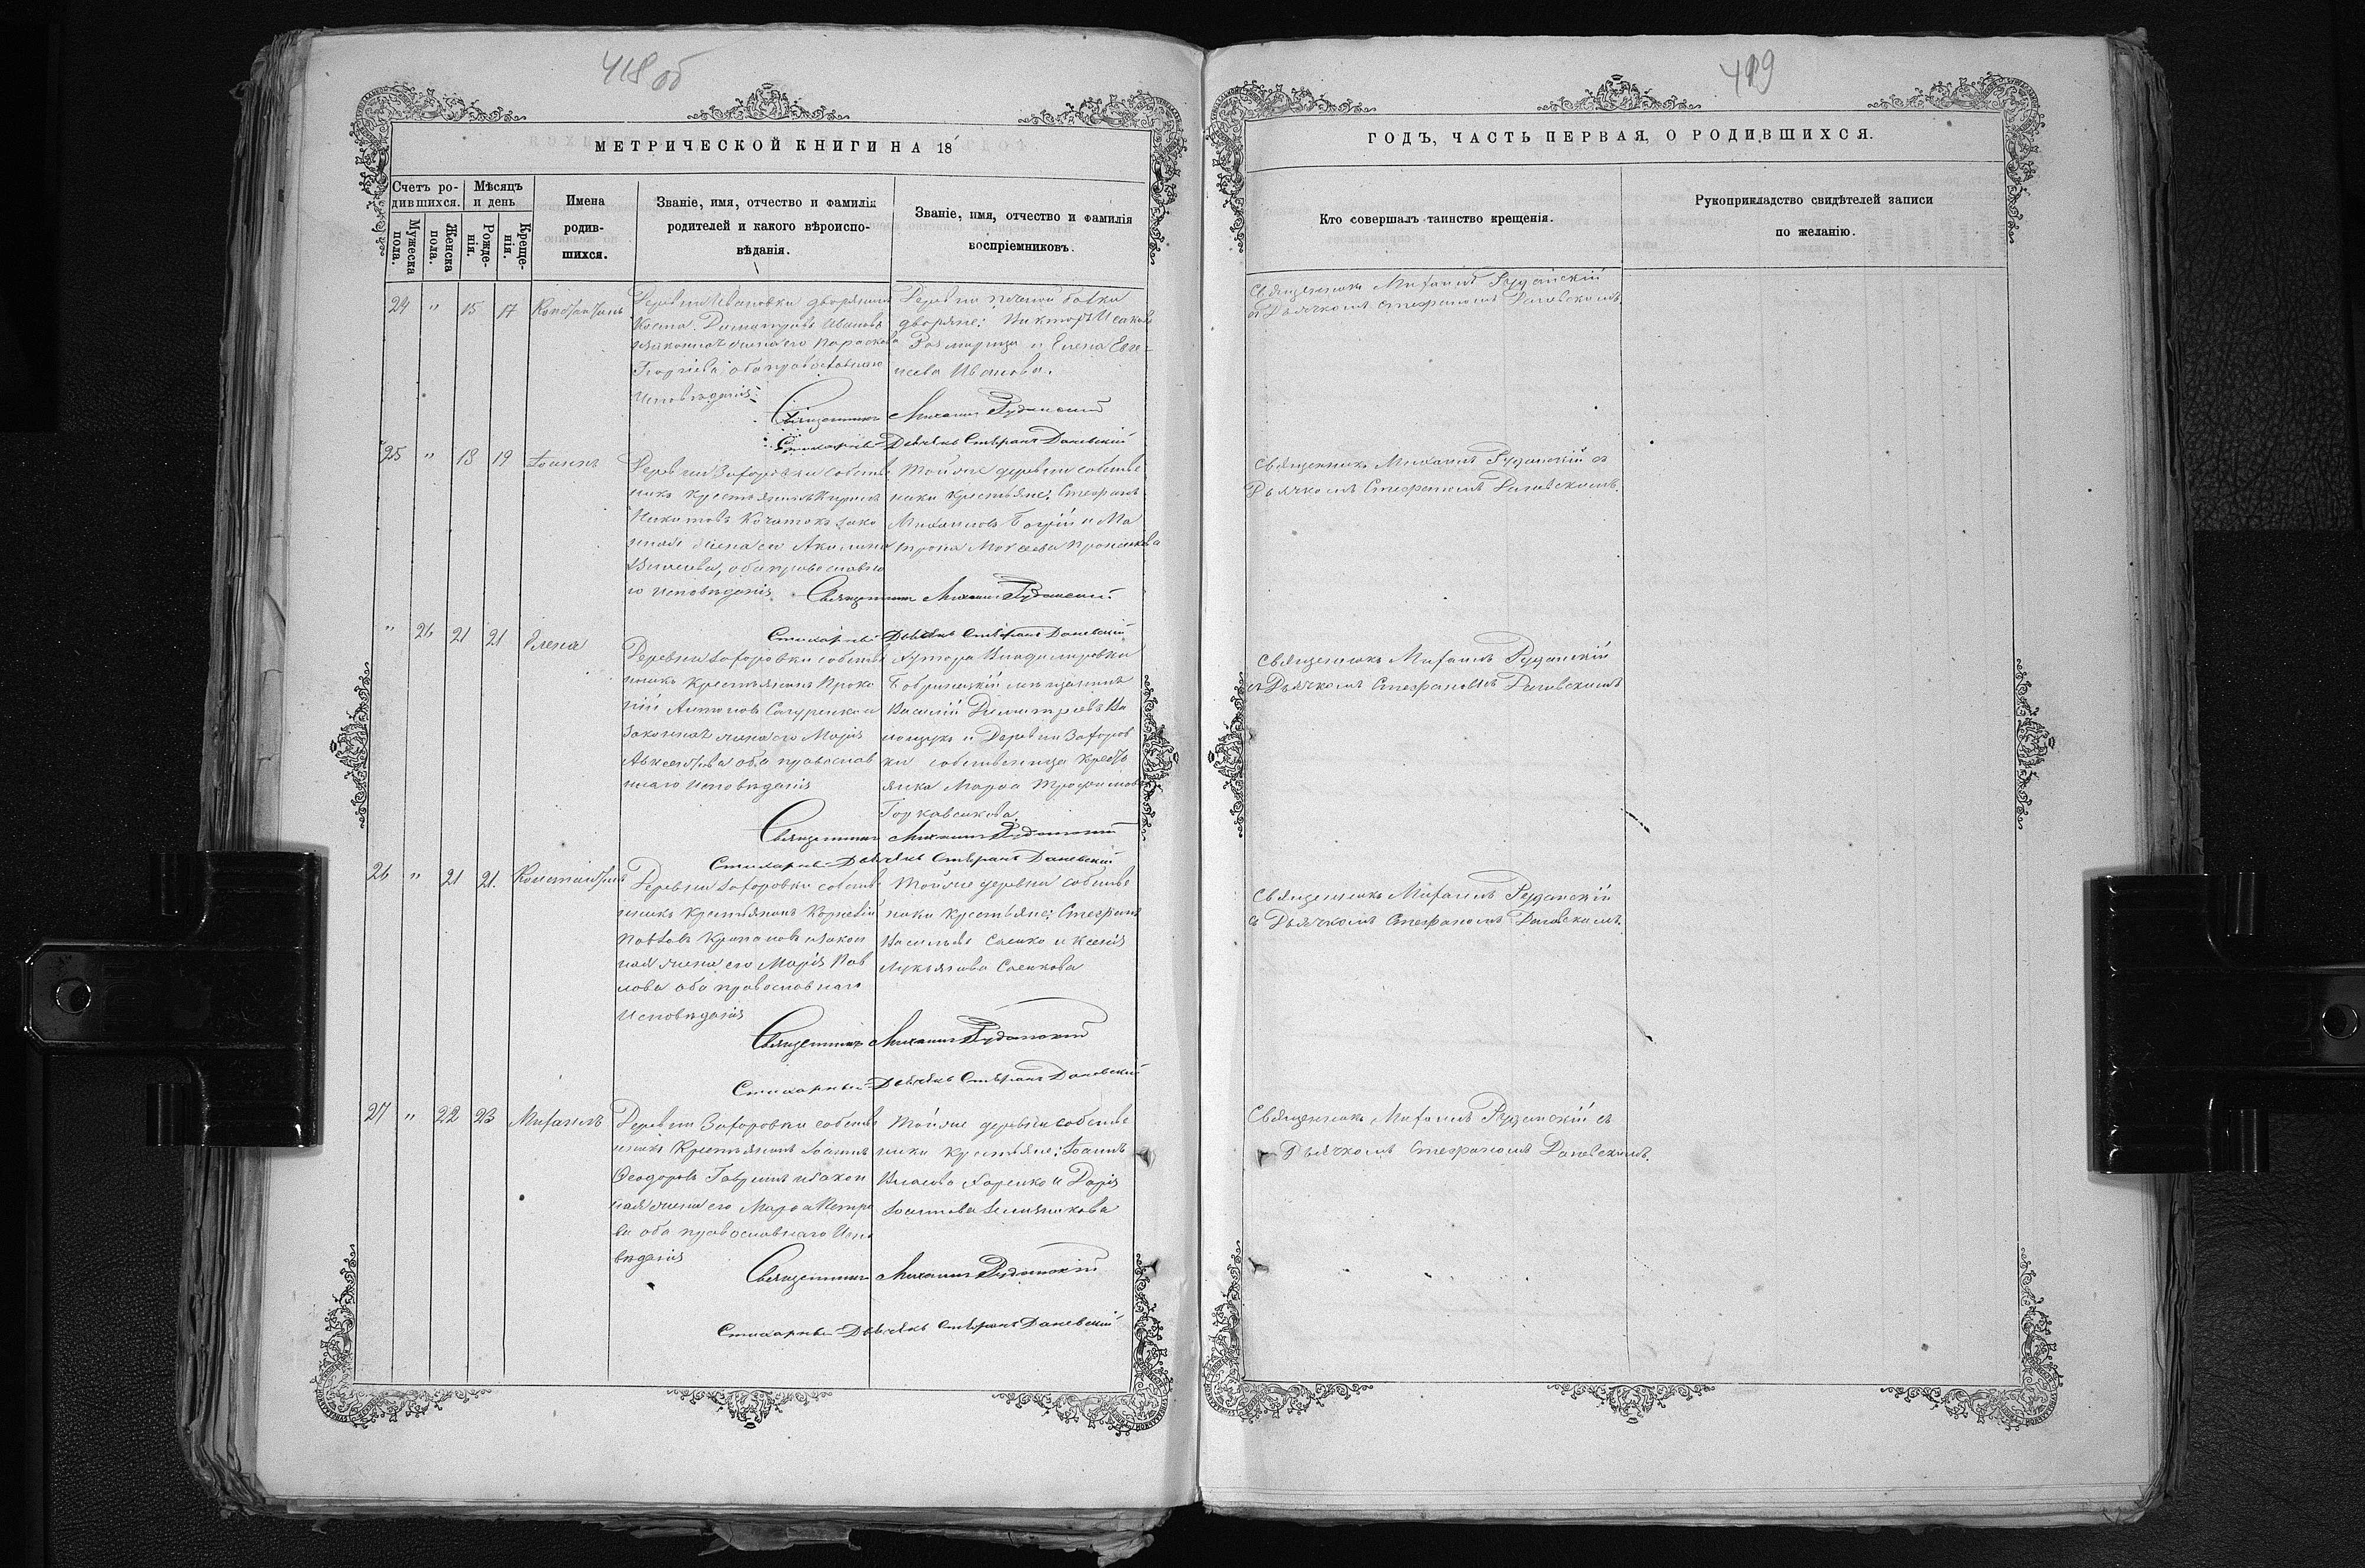 418 об
МЕТРИЧЕСКОЙ КНИГИ НА 18
Счетъ ро-
дившихся.
Мѣсяцъ
и день
Мужеска
пола.
Женска
пола.
Рожде-
нія.
Креще-
нія.
Имена
родив-
шихся.
Званіе, имя, отчество и фамилія
родителей и какого вѣроиспо-
вѣданія.
Званіе, имя, отчество и фамилія
воспріемниковъ.
24 " 15 17 Константинъ
Деревни Ивановки дворянинъ
Димитріевъ Ивановъ
жена его Параскева
Георгіева оба православнаго
Исповѣданія.
Деревни балки
дворяне: Викторъ Исаковъ
и Елена Евге-
ніева Иванова.
Священникъ Михаилъ Рудановскій
Стихарный Дьячекъ Стефанъ Даневскій
25 " 18 19 Іоаннъ
Деревни Захаровки собстве
никъ крестьянинъ Кириллъ
Никитовъ зако
ная жена его Акилина
оба православна
го Исповѣданія
Тойже деревни собстве
ники крестьяне: Стефанъ
Михаиловъ и Ма
трона
Священникъ Михаилъ Рудановскій
Стихарный Дьячекъ Стефанъ Даневскій
" 26 21 21 Елена
Деревни Захаровки собстве
никъ крестьянинъ Проко
пій Антоновъ и
Законная жена его Марія
Авксентіева оба православ
наго Исповѣданія
Хутора Владимировки
Бобринецкій мѣщанинъ
Василій Димитріевъ
и Деревни Захаров
ки собственица кресть
янка Марѳа Трофимова
Священникъ Михаилъ Рудановскій
Стихарный Дьячекъ Стефанъ Даневскій
26 " 21 21. Константинъ
Деревни Захаровки собстве
никъ крестьянинъ Корнилій
Павловъ и закон
ная жена его Марія Пав
лова оба православнаго
Исповѣданія
Тойже деревни собстве
ники крестьяне: Стефанъ
Васильевъ Саенко и Ксенія
Лукьянова Саенкова
Священникъ Михаилъ Рудановскій
Стихарный Дьячекъ Стефанъ Даневскій
27 " 22 23 Михаилъ
Деревни Захаровки собстве
никъ Крестьянинъ Іоаннъ
Ѳеодоровъ и закон
ная жена его Марѳа Петро
ва оба православнаго Испо
вѣданія
Тойже деревни собстве
ники крестьяне: Іоаннъ
и Дарія
Іоаннова
Священникъ Михаилъ Рудановскій
Стихарный Дьячекъ Стефанъ Даневскій
419
ГОДЪ, ЧАСТЬ ПЕРВАЯ, О РОДИВШИХСЯ.
Кто совершалъ таинство крещенія.
Рукоприкладство свидѣтелей записи
по желанію.
Священникъ Михаилъ Рудановскій
съ Дьячкомъ Стефаномъ Даневскимъ
Священникъ Михаилъ Рудановскій съ
Дьячкомъ Стефаномъ Даневскимъ.
Священникъ Михаилъ Рудановскій
съ Дьячкомъ Стефаномъ Даневскимъ
Священникъ Михаилъ Рудановскій
съ Дьячкомъ Стефаномъ Даневскимъ.
Священникъ Михаилъ Рудановскій съ
Дьячкомъ Стефаномъ Даневскимъ.